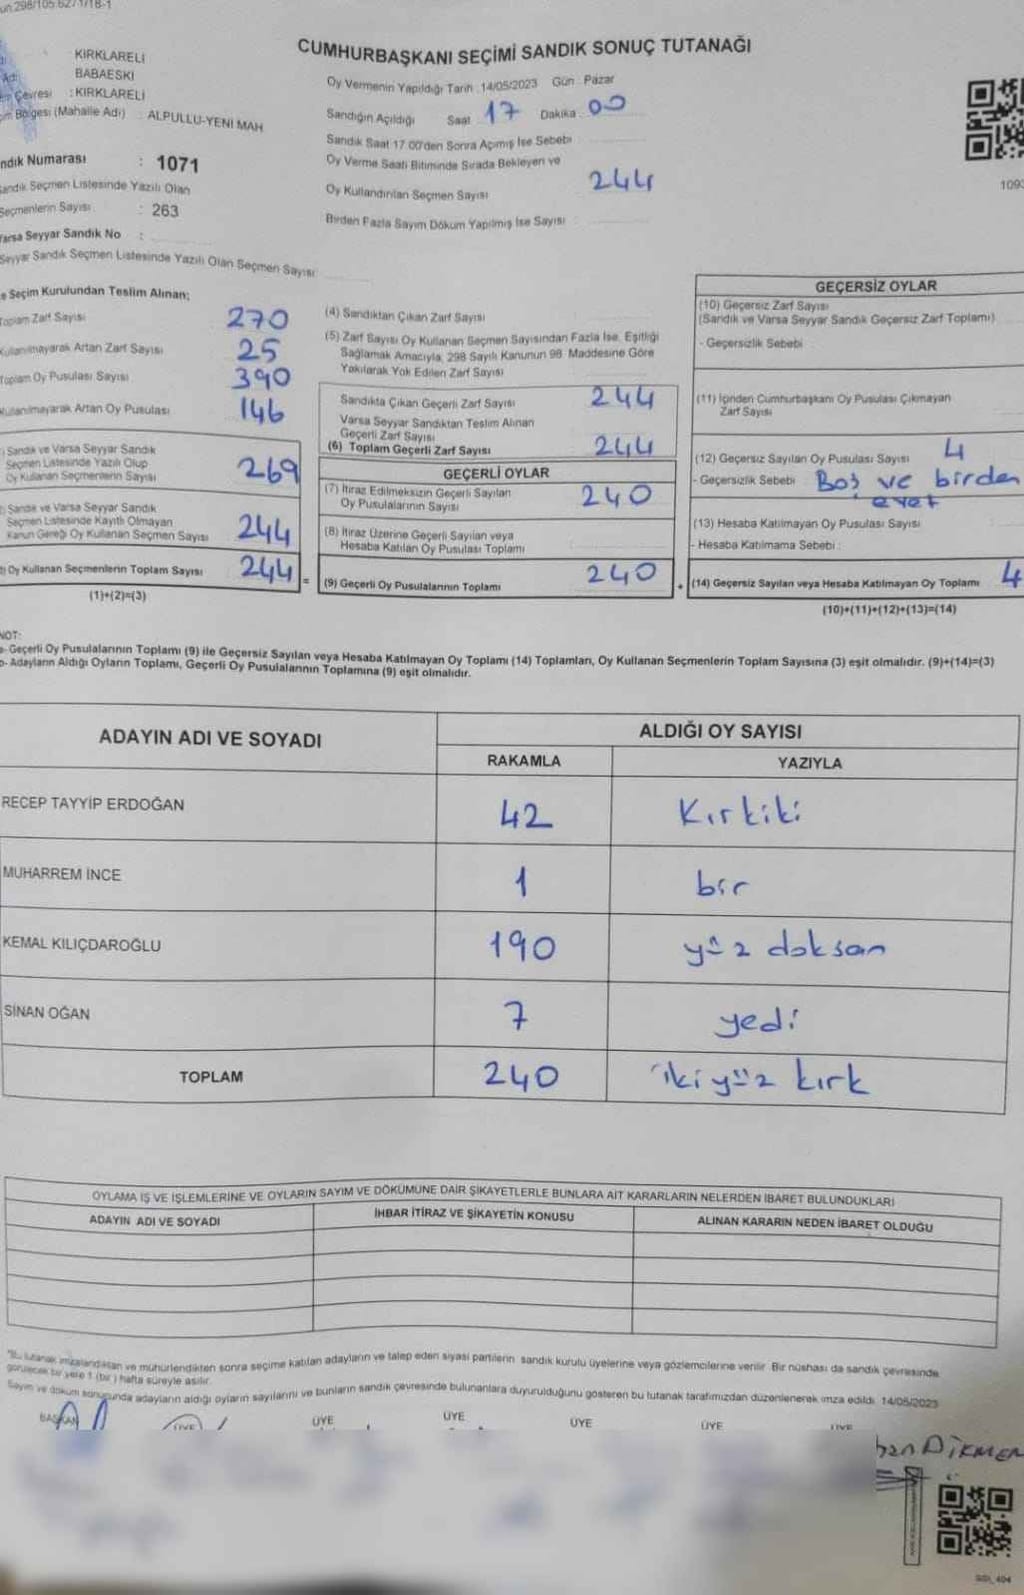 CUMHURBAŞKANI SEÇİMİ SANDIK SONUÇ TUTANAĞI
KIRKLARELİ
BABAESKİ
Çevresi : KIRKLARELİ
Bölgesi (Mahalle Adı) : ALPULLU-YENİ MAH
Numarası : 1071
Sandık Seçmen Listesinde Yazılı Olan
Seçmenlerin Sayısı : 263
Varsa Seyyar Sandık No :
Seyyar Sandık Seçmen Listesinde Yazılı Olan Seçmen Sayısı
Oy Vermenin Yapıldığı Tarih : 14/05/2023 Gün : Pazar
Sandığın Açıldığı Saat 17 Dakika 00
Sandık Saat 17.00'den Sonra Açımış İse Sebebi
Oy Verme Saati Bitiminde Sırada Bekleyen ve
Oy Kullandırılan Seçmen Sayısı 244
Birden Fazla Sayım Döküm Yapılmış İse Sayısı
1093
Seçim Kurulundan Teslim Alınan;
Toplam Zarf Sayısı 270
Kullanılmayarak Artan Zarf Sayısı 25
Toplam Oy Pusulası Sayısı 390
Kullanılmayarak Artan Oy Pusulası 146
Sandık ve Varsa Seyyar Sandık
Seçmen Listesinde Yazılı Olup
Oy Kullanan Seçmenlerin Sayısı 269
Sandık ve Varsa Seyyar Sandık
Seçmen Listesinde Kayıtlı Olmayan
Kanun Gereği Oy Kullanan Seçmen Sayısı 244
Oy Kullanan Seçmenlerin Toplam Sayısı 244 =
(1)+(2)=(3)
(4) Sandıktan Çıkan Zarf Sayısı
(5) Zarf Sayısı Oy Kullanan Seçmen Sayısından Fazla İse, Eşitliği
Sağlamak Amacıyla, 298 Sayılı Kanunun 98. Maddesine Göre
Yakılarak Yok Edilen Zarf Sayısı
Sandıkta Çıkan Geçerli Zarf Sayısı 244
Varsa Seyyar Sandıktan Teslim Alınan
Geçerli Zarf Sayısı
(6) Toplam Geçerli Zarf Sayısı 244
GEÇERLİ OYLAR
(7) İtiraz Edilmeksizin Geçerli Sayılan
Oy Pusulalarının Sayısı 240
(8) İtiraz Üzerine Geçerli Sayılan veya
Hesaba Katılan Oy Pusulası Toplamı
(9) Geçerli Oy Pusulalarının Toplamı 240 +
GEÇERSİZ OYLAR
(10) Geçersiz Zarf Sayısı
(Sandık ve Varsa Seyyar Sandık Geçersiz Zarf Toplamı)
- Geçersizlik Sebebi
(11) İçinden Cumhurbaşkanı Oy Pusulası Çıkmayan
Zarf Sayısı
(12) Geçersiz Sayılan Oy Pusulası Sayısı 4
- Geçersizlik Sebebi Boş ve birden
evet
(13) Hesaba Katılmayan Oy Pusulası Sayısı
- Hesaba Katılmama Sebebi :
(14) Geçersiz Sayılan veya Hesaba Katılmayan Oy Toplamı 4
(10)+(11)+(12)+(13)=(14)
NOT:
a- Geçerli Oy Pusulalarının Toplamı (9) ile Geçersiz Sayılan veya Hesaba Katılmayan Oy Toplamı (14) Toplamları, Oy Kullanan Seçmenlerin Toplam Sayısına (3) eşit olmalıdır. (9)+(14)=(3)
b- Adayların Aldığı Oyların Toplamı, Geçerli Oy Pusulalarının Toplamına (9) eşit olmalıdır.
ADAYIN ADI VE SOYADI ALDIĞI OY SAYISI
RAKAMLA YAZIYLA
RECEP TAYYİP ERDOĞAN 42 Kırkiki
MUHARREM İNCE 1 bir
KEMAL KILIÇDAROĞLU 190 yüz doksan
SİNAN OĞAN 7 yedi
TOPLAM 240 ikiyüz kırk
OYLAMA İŞ VE İŞLEMLERİNE VE OYLARIN SAYIM VE DÖKÜMÜNE DAİR ŞİKAYETLERLE BUNLARA AİT KARARLARIN NELERDEN İBARET BULUNDUKLARI
ADAYIN ADI VE SOYADI İHBAR İTİRAZ VE ŞİKAYETİN KONUSU ALINAN KARARIN NEDEN İBARET OLDUĞU
*Bu tutanak imzalandıktan ve mühürlendikten sonra seçime katılan adayların ve talep eden siyasi partilerin sandık kurulu üyelerine veya gözlemcilerine verilir. Bir nüshası da sandık çevresinde
görülecek bir yere 1 (bir) hafta süreyle asılır.
Sayım ve döküm sonucunda adayların aldığı oyların sayılarını ve bunların sandık çevresinde bulunanlara duyurulduğunu gösteren bu tutanak tarafımızdan düzenlenerek imza edildi. 14/05/2023
BAŞKAN ÜYE ÜYE ÜYE ÜYE ÜYE ÜYE
DİKMEN